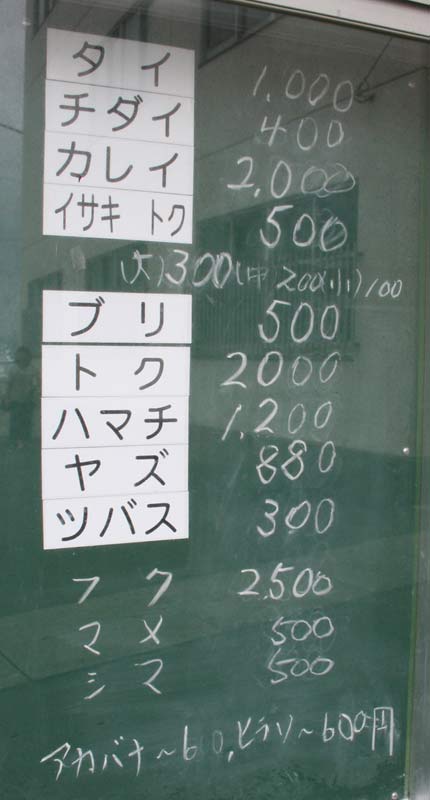 タイ 1,000
チダイ 400
カレイ 2,000
イサキ トク 500
(大)300(中 200(小)100
ブリ 500
トク 2000
ハマチ 1,200
ヤズ 880
ツバス 300
フク 2,500
マメ 500
シマ 500
アカバナ~600,ヒラソ~600円